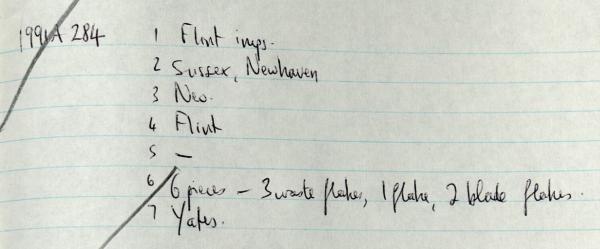 1991A 284 1 Flint imps.
2 Sussex, Newhaven
3 Neo.
4 Flint
5 —
6 6 pieces – 3 waste flakes, 1 flake, 2 blade flakes.
7 Yates.